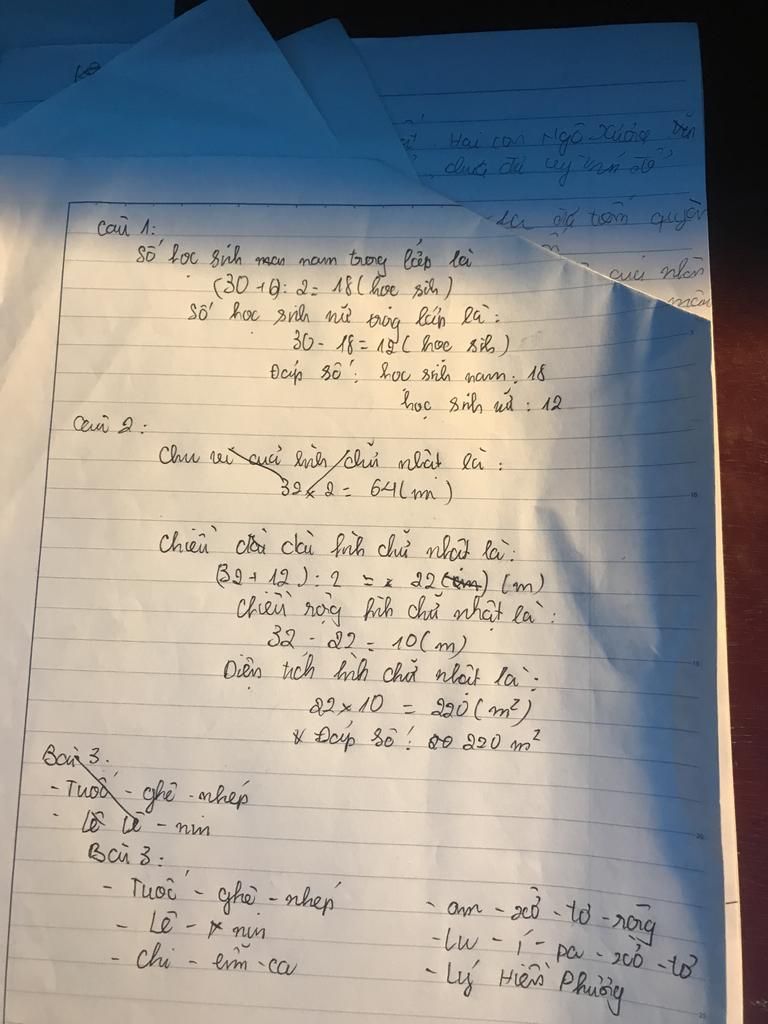 Hai con Ngô Xương
Câu 1:
Số học sinh nam trong lớp là
(30 + 6): 2 = 18 (học sih)
Số học sinh nữ trog lớp là:
30 - 18 = 12 (học sih)
Đáp số: học sinh nam: 18
học sinh nữ: 12
Câu 2:
Chu vi của hình chữ nhật là:
32 x 2 = 64 (m)
Chiều dài hình chữ nhật là:
(32 + 12): 2 = 22 (m)
Chiều rộng hình chữ nhật là:
32 - 22 = 10 (m)
Diện tích hình chữ nhật là:
22 x 10 = 220 (m²)
Đáp số: 220 m²
Bài 3.
- Tuốc - ghê - nhép
- Lê - nin
Bài 3:
- Tuốc - ghê - nhép
- Lê - nin
- Chi - em - ca
- am - xơ - tơ - rông
- Lu - i - pa - xơ - tơ
- Lý Hiển Phương